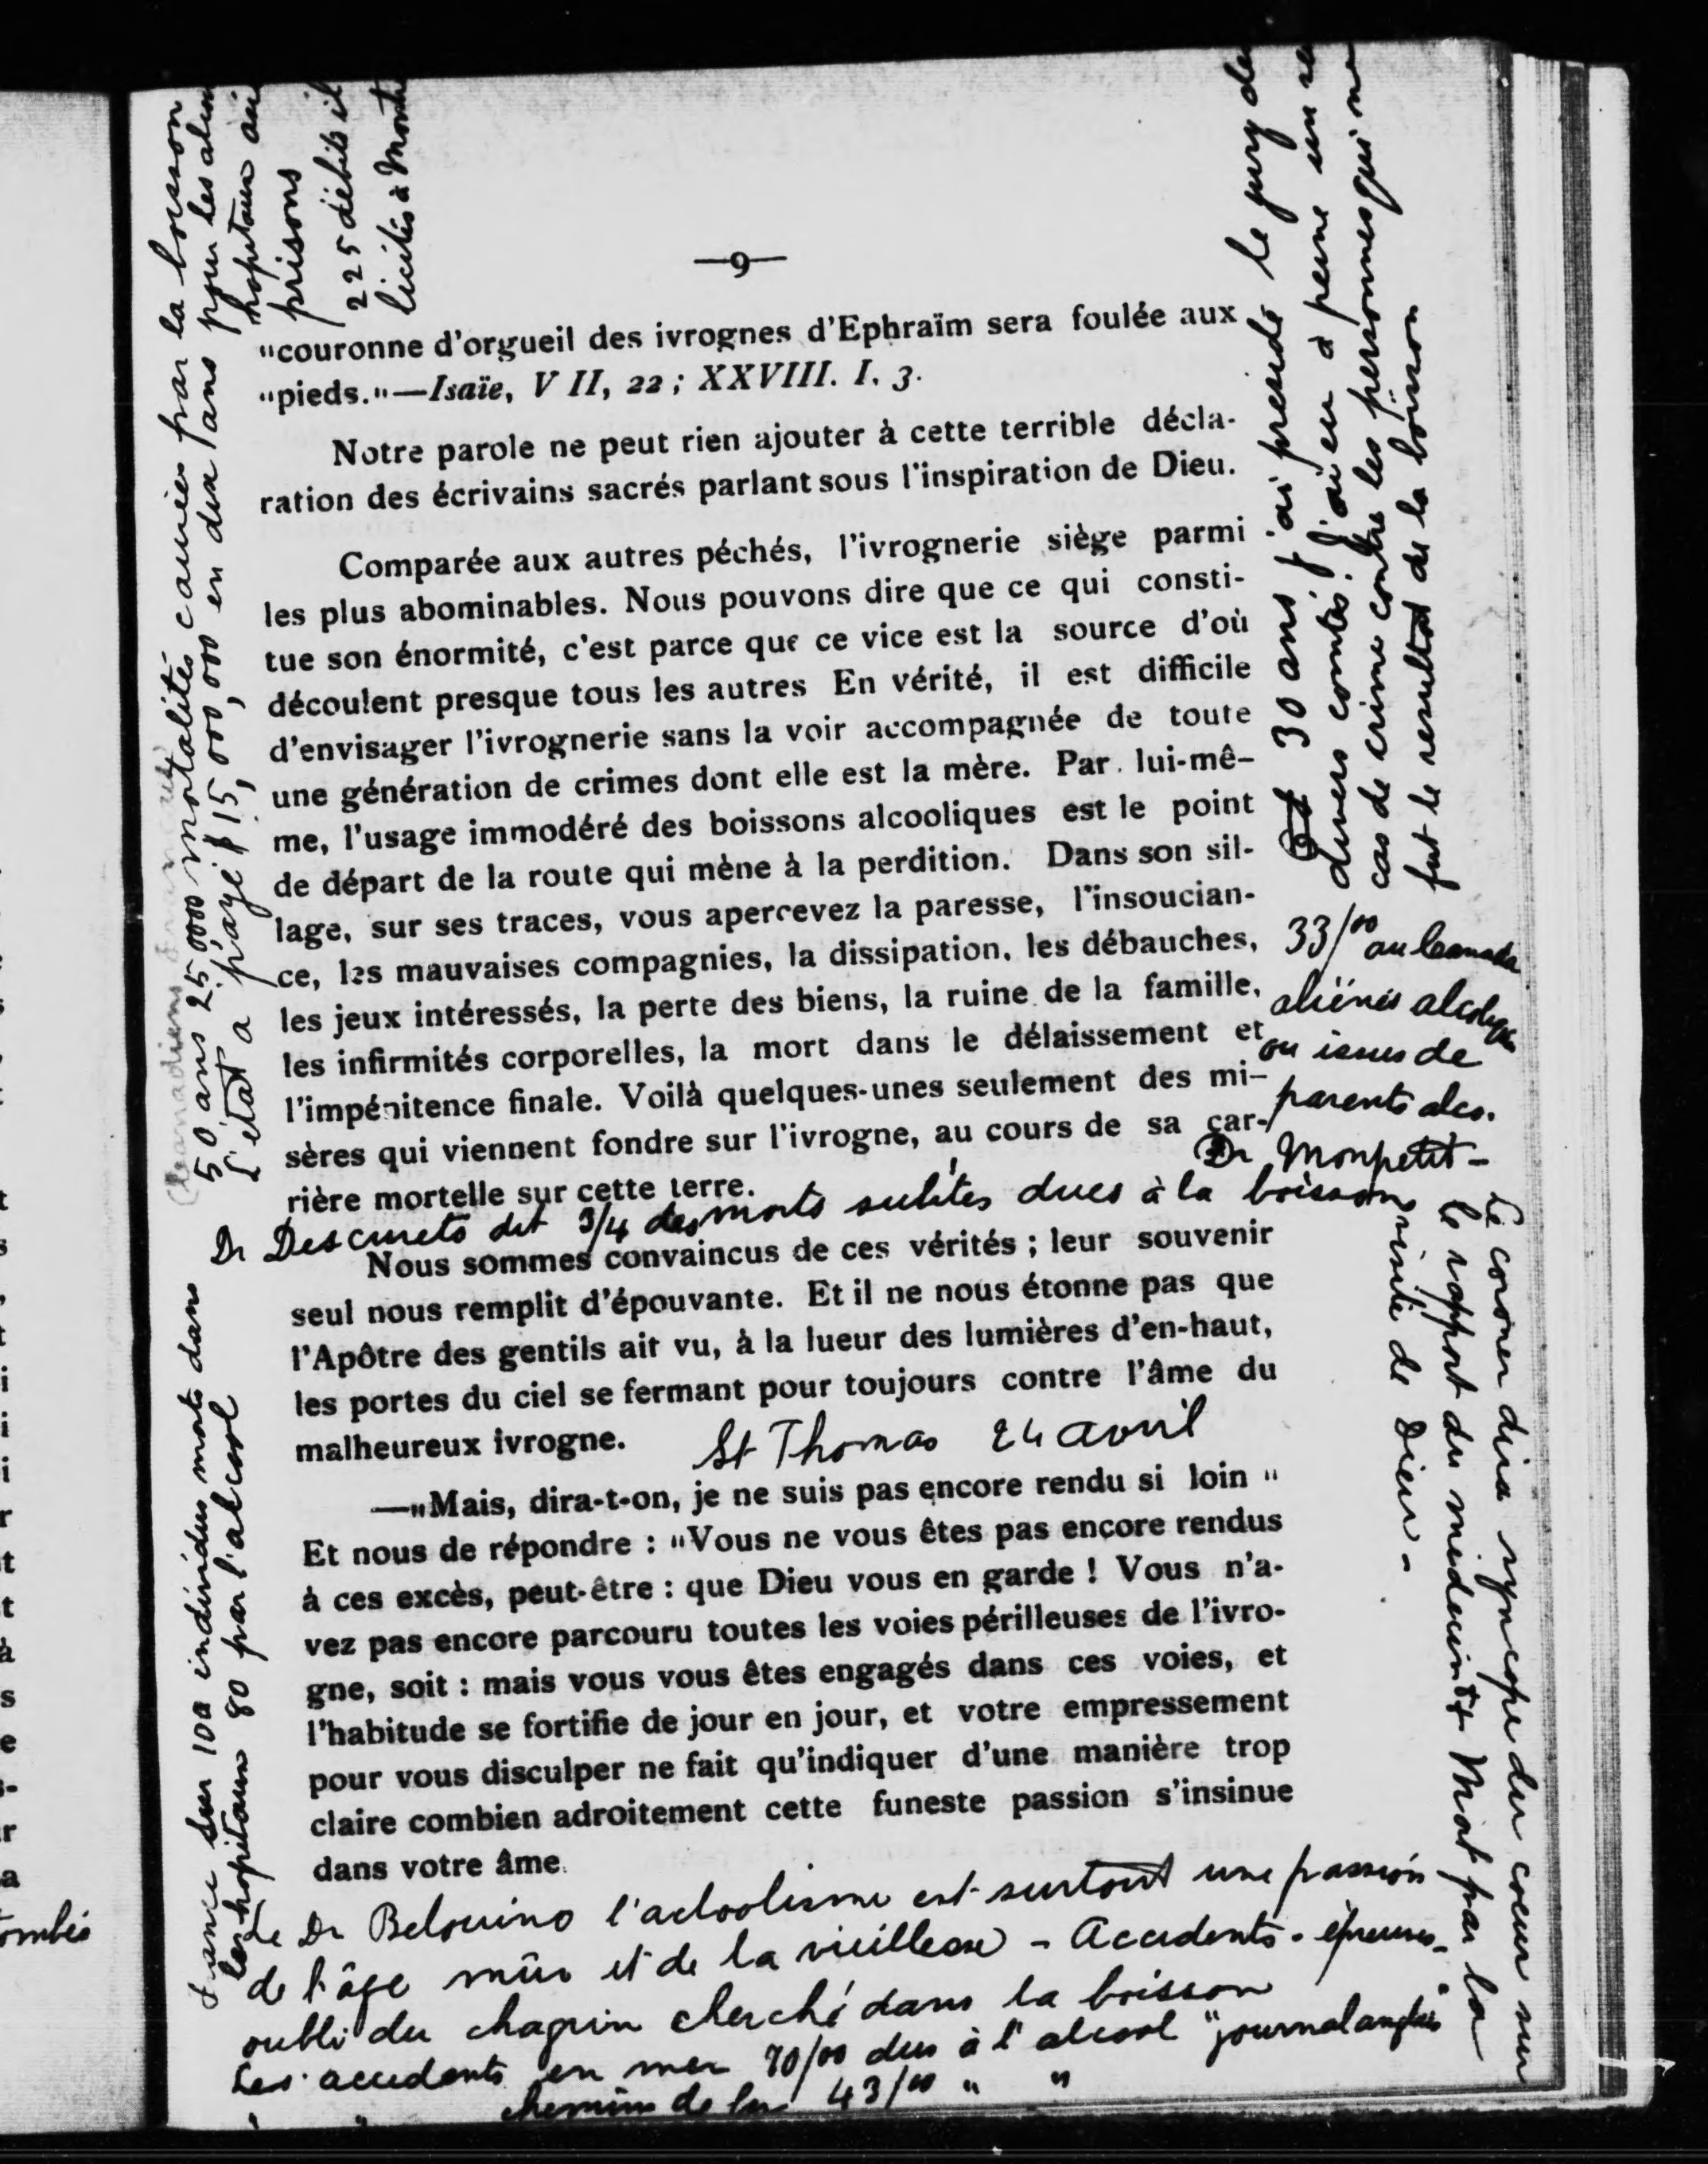 —9—
"couronne d'orgueil des ivrognes d'Ephraïm sera foulée aux
"pieds."—Isaïe, V II, 22 ; XXVIII. I, 3.
Notre parole ne peut rien ajouter à cette terrible décla-
ration des écrivains sacrés parlant sous l'inspiration de Dieu.
Comparée aux autres péchés, l'ivrognerie siège parmi
les plus abominables. Nous pouvons dire que ce qui consti-
tue son énormité, c'est parce que ce vice est la source d'où
découlent presque tous les autres En vérité, il est difficile
d'envisager l'ivrognerie sans la voir accompagnée de toute
une génération de crimes dont elle est la mère. Par lui-mê-
me, l'usage immodéré des boissons alcooliques est le point
de départ de la route qui mène à la perdition. Dans son sil-
lage, sur ses traces, vous apercevez la paresse, l'insoucian-
ce, les mauvaises compagnies, la dissipation, les débauches,
les jeux intéressés, la perte des biens, la ruine de la famille,
les infirmités corporelles, la mort dans le délaissement et
l'impénitence finale. Voilà quelques-unes seulement des mi-
sères qui viennent fondre sur l'ivrogne, au cours de sa car-
rière mortelle sur cette terre.
Dr Descurets dit 3/4 des morts subites dues à la boisson
Nous sommes convaincus de ces vérités ; leur souvenir
seul nous remplit d'épouvante. Et il ne nous étonne pas que
l'Apôtre des gentils ait vu, à la lueur des lumières d'en-haut,
les portes du ciel se fermant pour toujours contre l'âme du
malheureux ivrogne.
St Thomas 24 avril
—"Mais, dira-t-on, je ne suis pas encore rendu si loin "
Et nous de répondre : "Vous ne vous êtes pas encore rendus
à ces excès, peut-être : que Dieu vous en garde ! Vous n'a-
vez pas encore parcouru toutes les voies périlleuses de l'ivro-
gne, soit : mais vous vous êtes engagés dans ces voies, et
l'habitude se fortifie de jour en jour, et votre empressement
pour vous disculper ne fait qu'indiquer d'une manière trop
claire combien adroitement cette funeste passion s'insinue
dans votre âme.
Le Dr Belouino l'alcoolisme est surtout une passion
de l'âge mûr et de la vieillesse - Accidents - épreuves -
oubli du chagrin cherché dans la boisson
Les accidents en mer 70/00 dus à l'alcool "journal anglais"
" " chemins de fer 43/00 " "
50 ans 25 000 mortalités causées par la boisson
L'état a payé $15,000,000 en dix ans pour les
hopitaux
prisons
225 débits
licites à
France Sur 100 individus morts dans
les hopitaux 80 par l'alcool
30 ans j'ai présidé le jury de
divers comtés. J'ai eu à peine un
cas de crime contre les personnes qui ne
fut le resultat de la boisson
33/00 au Canada
aliénés
ou issus de
parents alco.
Dr Monpetit -
Le coroner dira syncope du coeur sur
le rapport du médecin Mort par la
visite de Dieu -
ombés